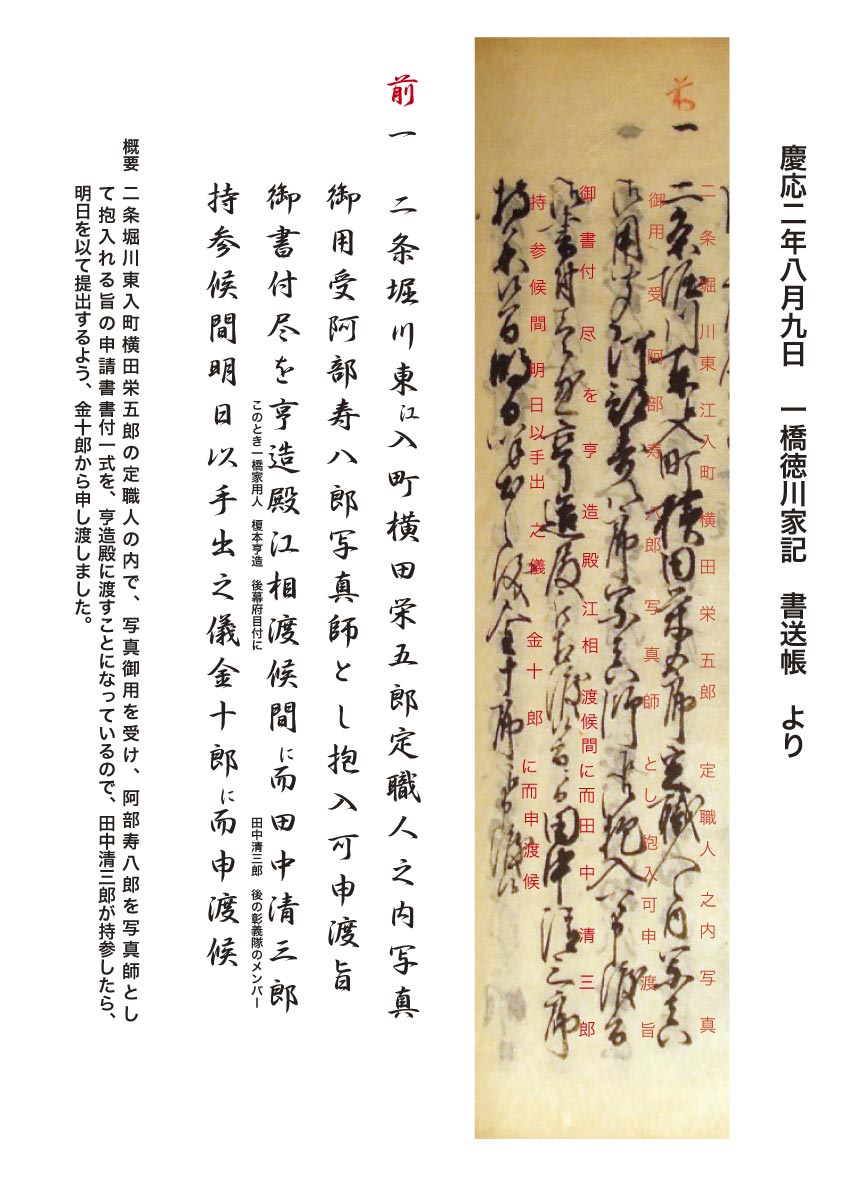 慶応二年八月九日　一橋徳川家記　書送帳　より
前
一
二条堀川東江入町横田栄五郎　定職人之内写真
御用受阿部寿八郎写真師とし抱入可申渡旨
御書付尽を亨造殿江相渡候間に而田中清三郎
持参候間明日以手出之儀金十郎に而申渡候
前
一　二条堀川東江入町横田栄五郎定職人之内写真
御用受阿部寿八郎写真師とし抱入可申渡旨
御書付尽を亨造殿江相渡候間に而田中清三郎
このとき一橋家用人　榎本亨造　後幕府目付に
田中清三郎　後の彰義隊のメンバー
持参候間明日以手出之儀金十郎に而申渡候
概要　二条堀川東入町横田栄五郎の定職人の内で、写真御用を受け、阿部寿八郎を写真師とし
て抱入れる旨の申請書書付一式を、亨造殿に渡すことになっているので、田中清三郎が持参したら、
明日を以て提出するよう、金十郎から申し渡しました。